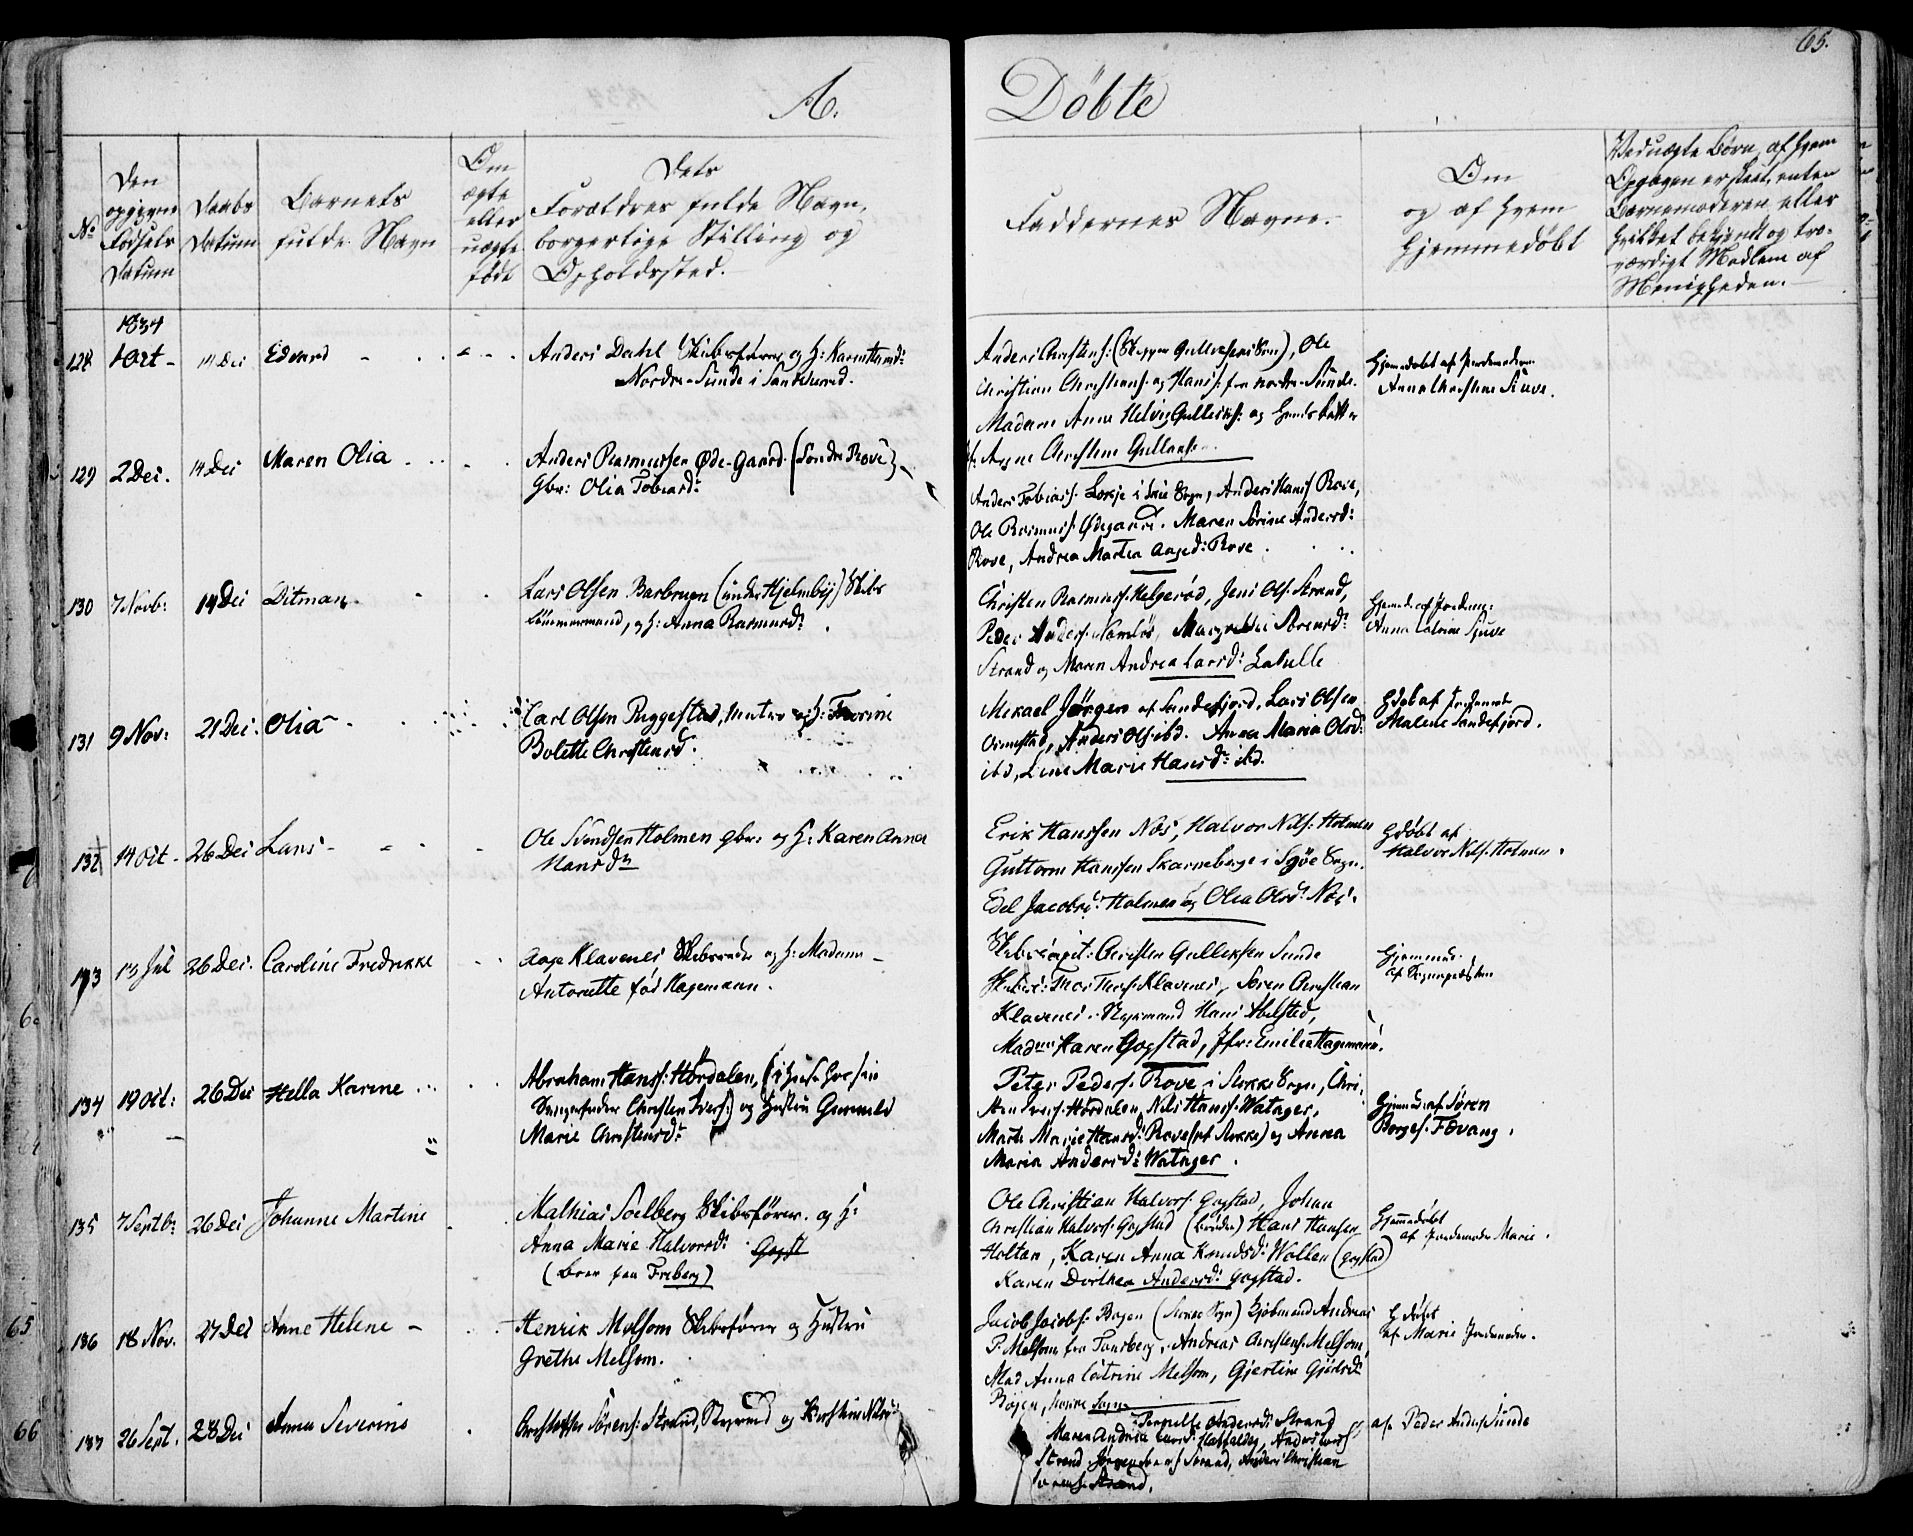 65.
A. Döbte
No
Den opgivne Födsels Datum
Daabs Datum
Barnets fulde Navn
Om ægte eller uægte födt
Dets Forældres fulde Navn, borgerlige Stilling og Opholdssted.
Faddernes Navne.
Om og af hvem hjemmedöbt
Ved uægte Börn, af hvem Opgaven er skeet, enten Barnemoderen eller hvilket bekjendt og troværdigt Medlem af Menigheden.
1834
128 1 Oct - 14 Dec Edvard
Anders Dahl Skibsförer og H:
Nordre-Sunde i Sandeherred.
Anders Christens: (Skipper Gullichsens Sön), Ole
Christian Christens: og Hans: fra Nordre-Sunde.
Madam Anne Helvig Gulliks: og
Anne Christine
Hjemmedöbt af Jordemoderen
Anne Christine Siuve.
129 2 Dec. 14 Dec Maren Olia
Anders Rasmussen Öde-Gaard (Söndre Rove)
Gbr: Olia Tobiasd:
Anders Tobiass. i Skee Sogn, Anders Hanss Rove,
Ole Rasmuss. Ödegaard. Maren Sörine Andersd:
Rove, Andrea Martea Aaged: Rove.
130 7 Novb: 14 Dec Ditman
Lars Olsen Barbrugen (under Hjelmbÿ) Skibs
tömmermand, og H: Anna Rasmusd:
Christen Rasmuss. Helgeröd, Jens Ols. Strand,
Peder Anders. Namlös, Margrethe Sörensd:
Strand og Maren Andrea Larsd:
Hjemmed: af Jordem:
Anne Catrine Sjuve
131 9 Nov: 21 Dec: Olia
Carl Olsen Ruggestad, Matros og H: Thorine
Bolette Christensd:
Mikael Jörgen af Sandefjord, Lars Olsen
Ormestad, Anders Ols. ibd. Anna Maria Olsd:
ibd, Line Marie Hansd: ibd.
Hdöb af Jordemoder
Malene Sandefjord.
132 14 Oct - 26 Dec Lars
Ole Svendsen Holmen Gbr: og H: Karen Anna
Hansdr
Erik Hanssen Næs, Halvor Nils: Holmen
Guttorm Hanssen Skarneberge i Sogn.
Edel Jacobsd: Holmen og Olea Olsd: Næs.
Hdöbt af
Halvor Nils. Holmen.
133 13 Jul 26 Dec. Caroline Fredrikke
Aage Klavenes Skibsreder og H: Madame
Antonette föd Hagemann.
Skibscapit: Christen Gullichsen Sunde
Thor Thors. Klavenes, Sören Christian
Klavenes, Styrmand Hans
Madme Karen Gogstad, Jfr: Emilie Hagemann.
Hjemmed.
af Sognepræsten
134 19 Oct: 26 Dec Hella Karine
Abraham Hanss: Hördalen, (i Huse hos sin
Svigerfader Christen Ivers:) og Hustru Gunnild
Marie Christensd:
Peter Peders. Rove i Stokke Sogn, Chri:
Hördalen, Nils Hanss. Watager,
Marte Marie Hansd: Rove (pt Stokke) og Anna
Maria Andersd: Watager.
Hjemmed. af Sören
Borges. Fevang.
135 7 Septbr: 26 Dec Johanne Martine
Mathias Soelberg Skibsförer. og H:
Anna Marie Halvorsd: Gogst
(boer paa Freberg)
Ole Christian Halvors: Gogstad, Johan
Christian Halvors: Gogstad (Brödre) Hans Hansen
Holtan, Karen Anna Knudsd: Wollen (Gogstad)
Karen Dorthea Andersd: Gogstad.
Hjemmedöbt
af Jordemoder Marie.
136 18 Nov. 27 Dec Anne Helene
Henrik Melsom Skibsförer og Hustru
Grethe Melsom.
Jacob Jacobs: Bogen (Stokke Sogn) Kjöbmand Andreas
P. Melsom fra Tonsberg, Andreas Christens: Melsom,
Mad Anna Catrine Melsom, Gjertine
Bögen, Stokke Sogn
H döbt
af Marie Jordemoder.
137 26 Sept. 28 Dec Anna Severine
Christopher Sörens: Strand, Styrmd og Kirstine Nilsd:
Pernille Andersd: Strand
Maren Andrea Larsd: Anders Lars:
Strand, Jörgen Strand, Anders Christian
Sörens: Strand.
af Peder Anders Sunde
65
66